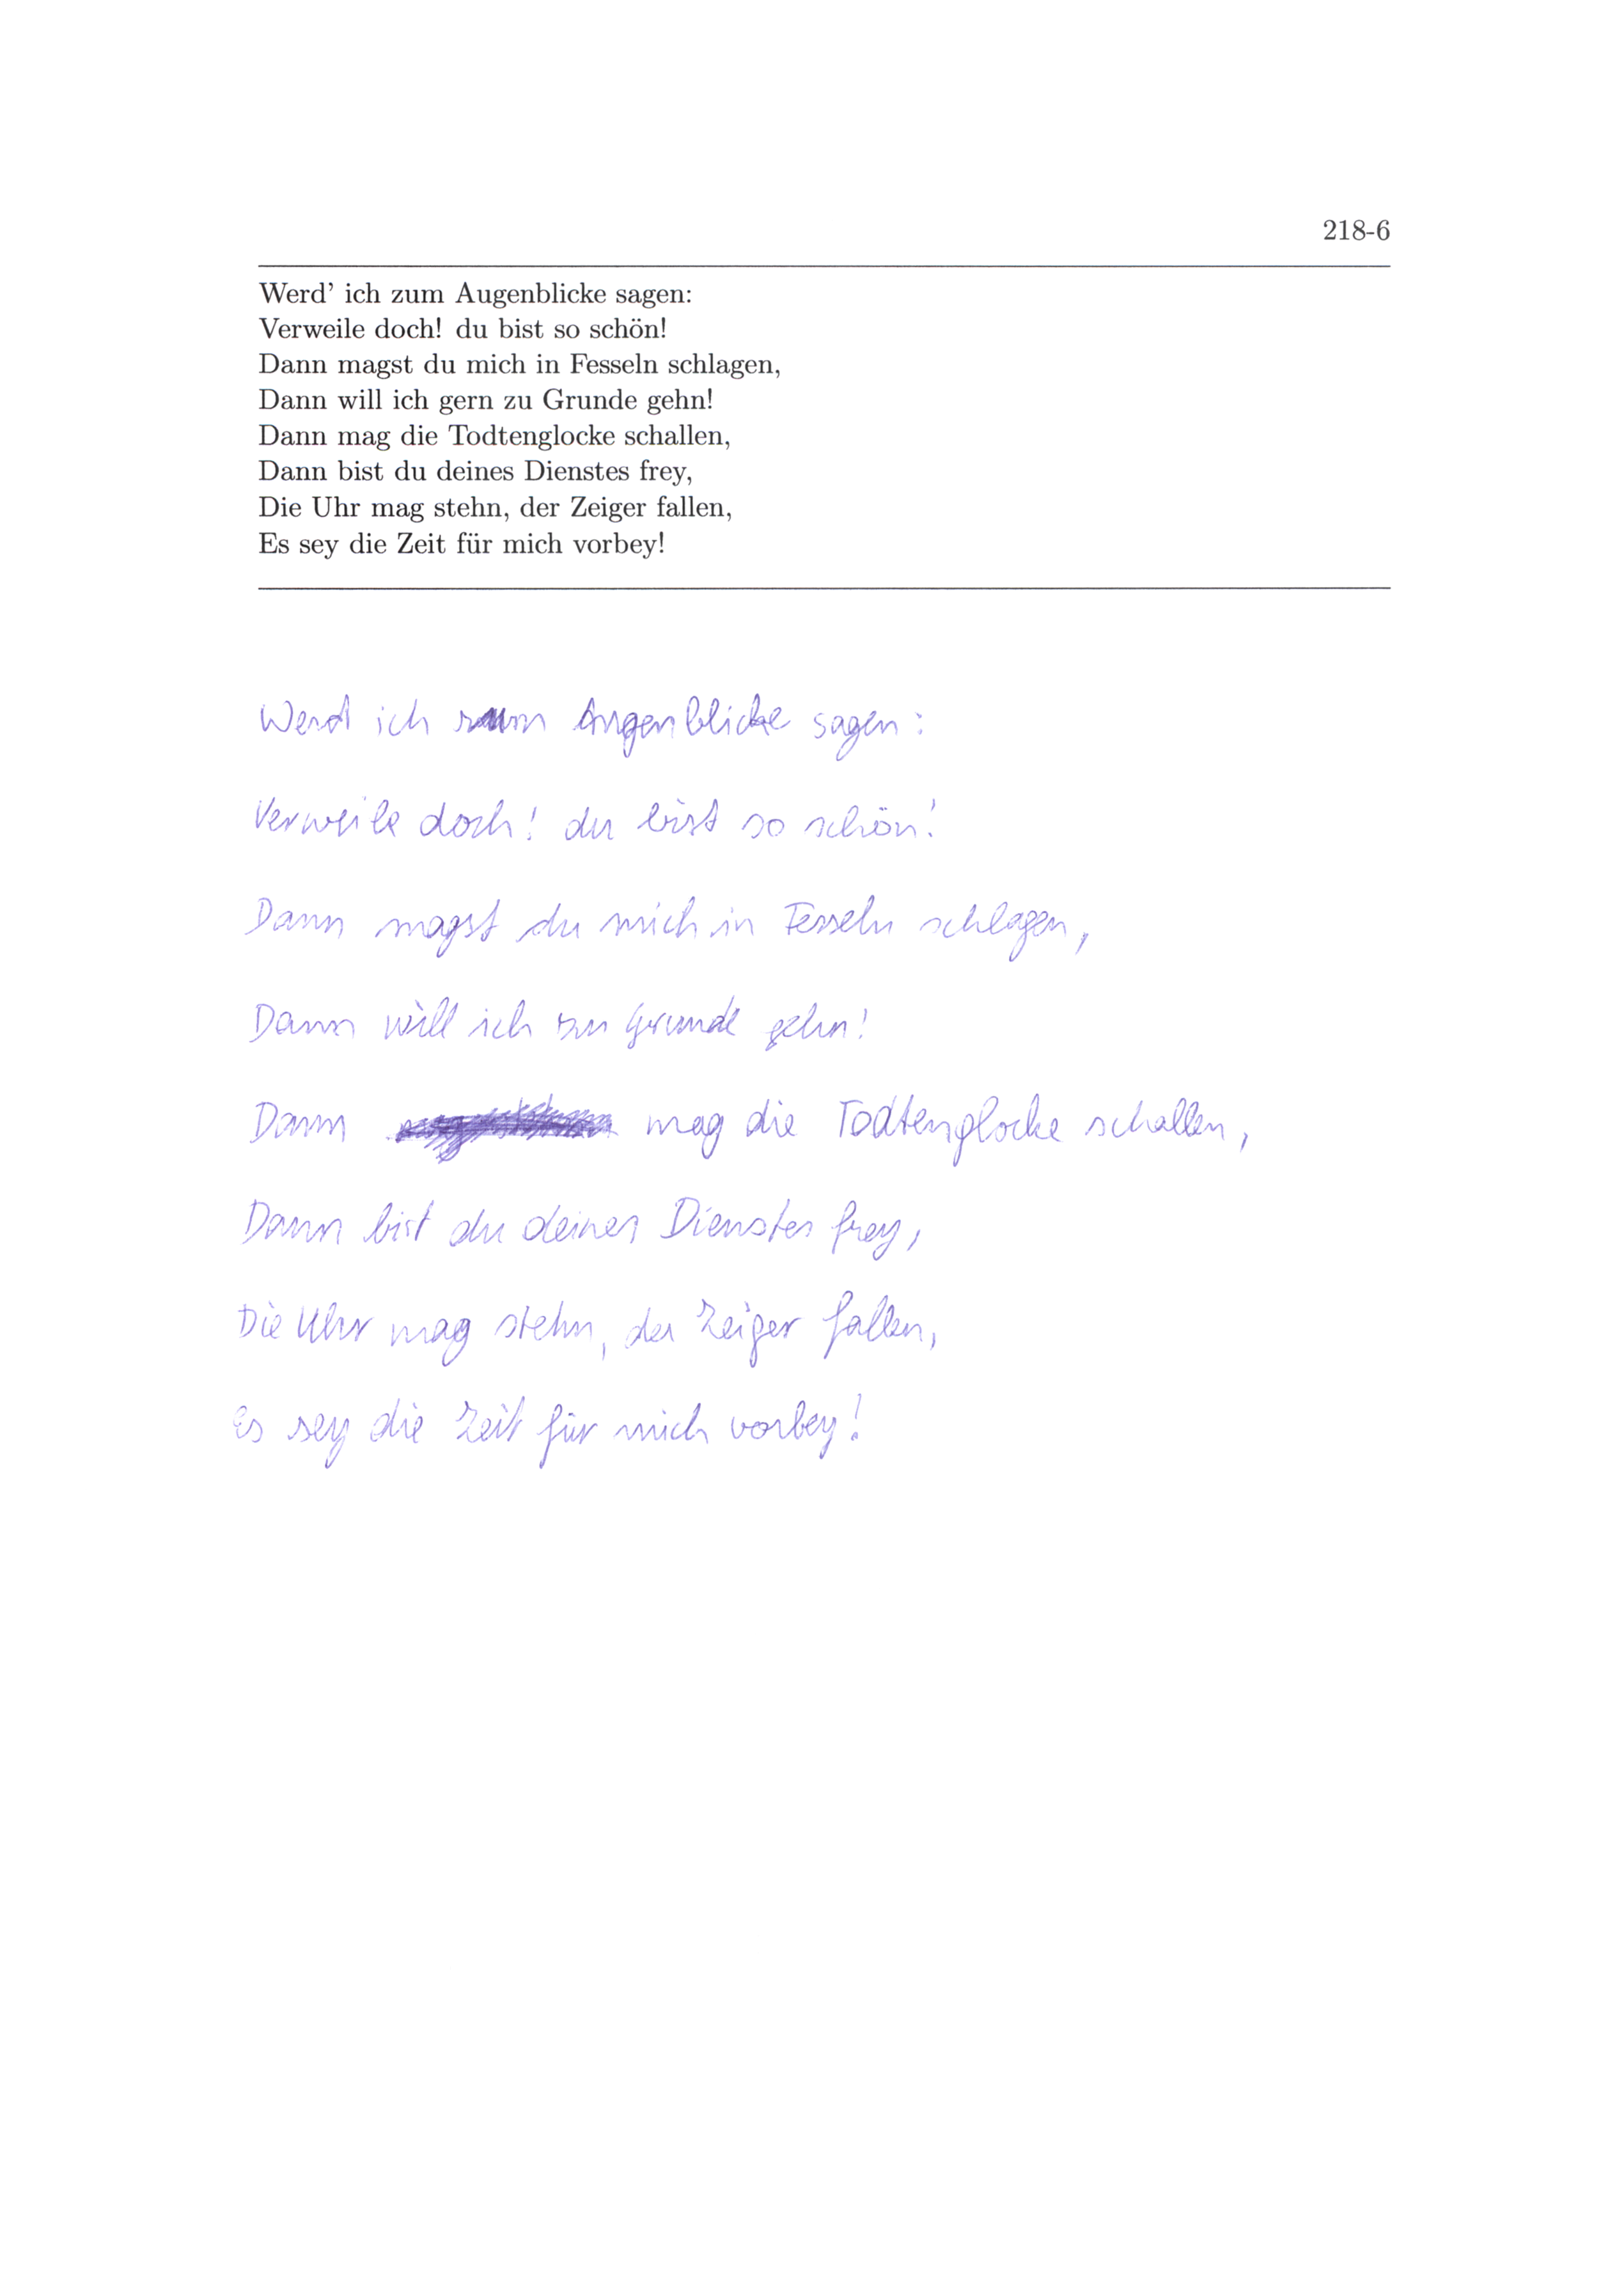 218-6
Werd' ich zum Augenblicke sagen:
Verweile doch! du bist so schön!
Dann magst du mich in Fesseln schlagen,
Dann will ich gern zu Grunde gehn!
Dann mag die Todtenglocke schallen,
Dann bist du deines Dienstes frey,
Die Uhr mag stehn, der Zeiger fallen,
Es sey die Zeit für mich vorbey!
Werd ich zum Augenblicke sagen:
Verweile doch! du bist so schön!
Dann magst du mich in Fesseln schlagen,
Dann will ich zu Grunde gehn!
Dann mag die Todtenglocke schallen,
Dann bist du deines Dienstes frey,
Die Uhr mag stehn, der Zeiger fallen,
Es sey die Zeit für mich vorbey!